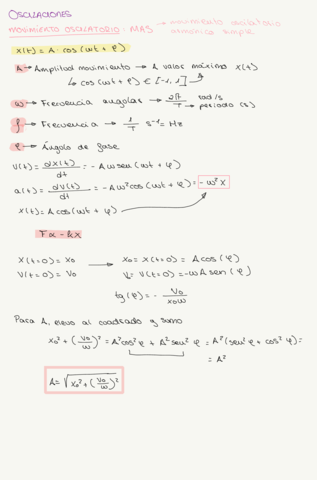 OSCILACIONES
MOVIMIENTO OSCILATORIO: MAS → movimiento oscilatorio armónico simple
x(t) = A · cos(ωt + φ)
A → Amplitud movimiento → A valor máximo X(t)
↳ cos(ωt + φ) ∈ [-1, 1]
ω → Frecuencia angular → 2π/T rad/s → periodo (s)
f → Frecuencia → 1/T s⁻¹ = Hz
φ → Ángulo de fase
V(t) = dX(t)/dt = - Aω sen(ωt + φ)
a(t) = dV(t)/dt = - Aω² cos(ωt + φ) = - ω² X
X(t) = A cos(ωt + φ)
F α - kx
X(t=0) = x₀ → x₀ = X(t=0) = A cos(φ)
V(t=0) = V₀ V₀ = V(t=0) = -ωA sen(φ)
tg(φ) = - V₀/x₀ω
Para A, elevo al cuadrado y sumo
x₀² + (V₀/ω)² = A² cos² φ + A² sen² φ = A² (sen² φ + cos² φ) =
= A²
A = √(x₀² + (V₀/ω)²)